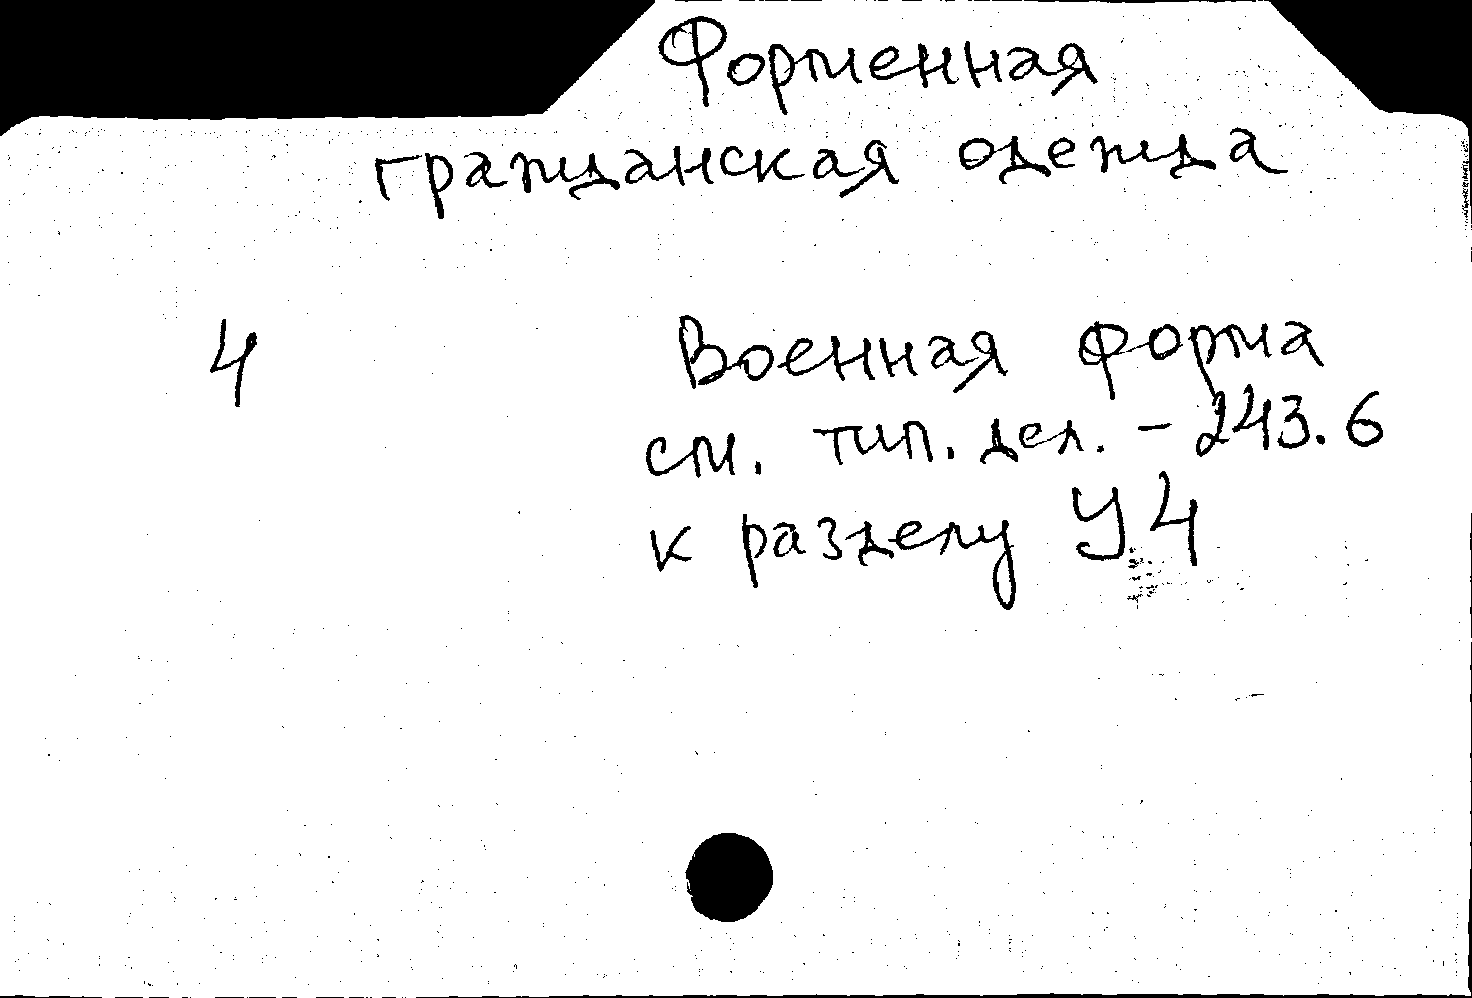 Форменная
гражданская одежда
4 Военная форма
см. тип. дел. - 243.6
к разделу У4